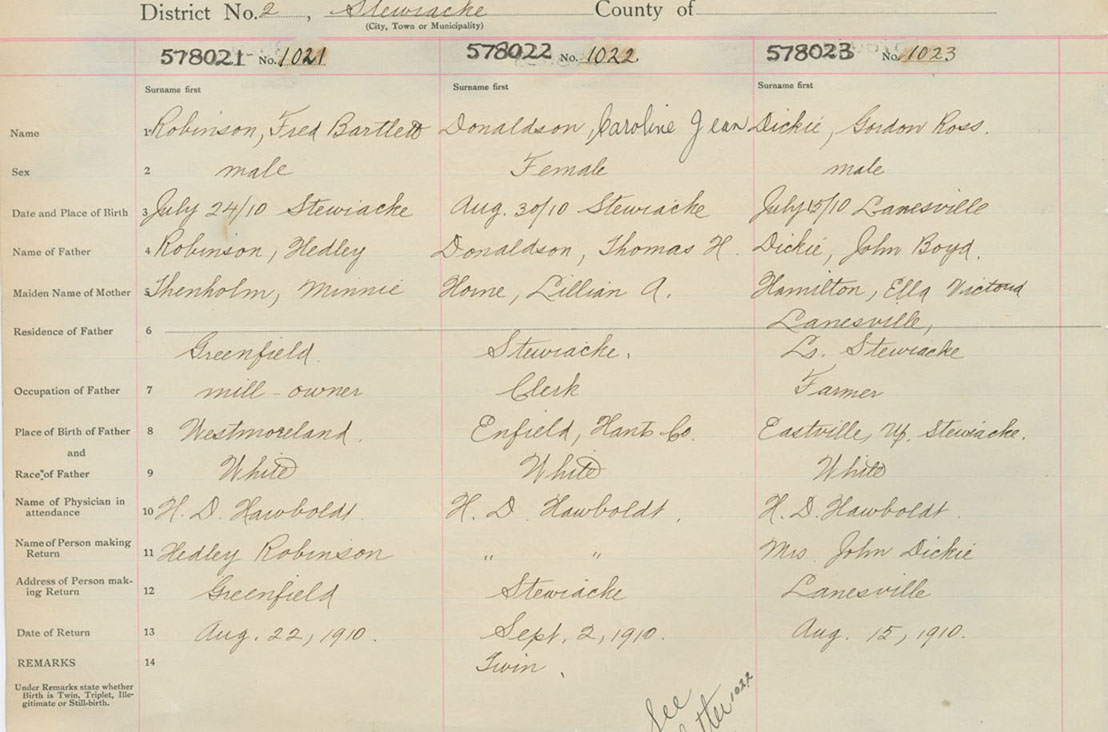 District No. 2 , Stewiacke County of
(City, Town or Municipality)
578021 No. 1021 578022 No. 1022. 578023 No. 1023
Surname first Surname first Surname first
Name 1 Robinson, Fred Bartlett Donaldson, Caroline Jean Dickie, Gordon Ross.
Sex 2 male Female male
Date and Place of Birth 3 July 24/10 Stewiacke Aug. 30/10 Stewiacke July 15/10 Lanesville
Name of Father 4 Robinson, Hedley Donaldson, Thomas H. Dickie, John Boyd.
Maiden Name of Mother 5 Thenholm, Minnie Horne, Lillian A. Hamilton, Ella Victoria
Residence of Father 6 Lanesville,
Greenfield. Stewiacke. Lr. Stewiacke
Occupation of Father 7 mill-owner Clerk Farmer
Place of Birth of Father 8 Westmoreland. Enfield, Hants Co. Eastville, Up. Stewiacke.
and
Race of Father 9 White White White
Name of Physician in
attendance 10 H. D. Hawboldt. H. D. Hawboldt. H. D. Hawboldt.
Name of Person making
Return 11 Hedley Robinson " " Mrs John Dickie
Address of Person mak-
ing Return 12 Greenfield Stewiacke Lanesville
Date of Return 13 Aug. 22, 1910. Sept. 2, 1910. Aug. 15, 1910.
REMARKS 14 Twin.
Under Remarks state whether
Birth is Twin, Triplet, Ille-
gitimate or Still-birth.
See
1022